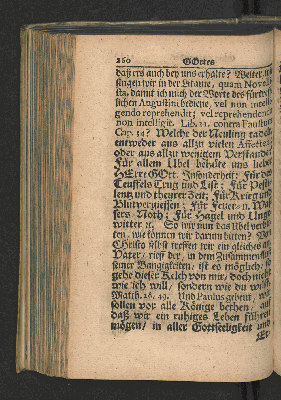 260 GOttes
daß ers auch bey uns erhalte? Weiter, un
singen wir in der Litaney, quam Novel-
lita, damit ich mich der Worte des fürtref-
flichen Augustini bediene, vel non intelli-
gendo reprehendit; vel reprehendendo
non intelligit. Lib. 22. contra Faustum
Cap. 32? Welche der Neuling tadelt
entweder aus allzu vielen Affecten
oder aus allzu wenigem Verstande:
Für allem Übel behüte uns lieber
HErr GOtt. Insonderheit: Für des
Teuffels Trug und List: Für Pesti-
lentz und theurer Zeit: Für Krieg und
Blutvergiessen: Für Feuer- u. Was-
sers Noth: Für Hagel und Unge-
witter ꝛc. So wir nun das Übel verbit-
ten, wie können wir darum bitten? Von
Christo selbst treffen wir ein gleiches an:
Vater, rieff der, in dem Zusammenfluß
seiner Bangigkeiten, ist es möglich, so
gehe dieser Kelch von mir, doch nicht
wie ich will, sondern wie du wilt.
Matth. 26, 49. Und Paulus gebeut, wir
sollen vor alle Könige bethen, auf
daß wir ein ruhiges Leben führen
mögen, in aller Gottseeligkeit und